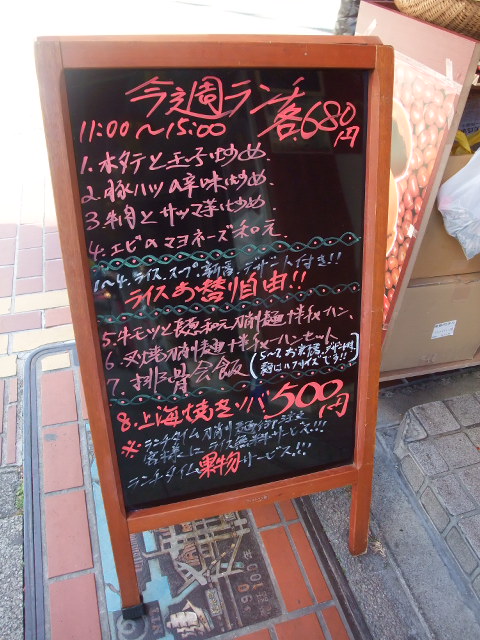 今週ランチ
11:00～15:00 各680円
1. ホタテと玉子炒め.
2. 豚ハツの辛味炒め.
3. 牛肉とサツマ芋炒め.
4. エビのマヨネーズ和え
1～4. ライス、スープ、新香、デザート付き!!
ライスお替り自由!!
5. 牛モツと長葱和え刀削麺 半チャーハン.
6. 刀削麺 半チャーハンセット.
7. 排骨会飯
8. 上海焼きソバ 500円
※ランチタイム刀削麺
ライス無料サービス!!!
ランチタイム果物サービス!!!